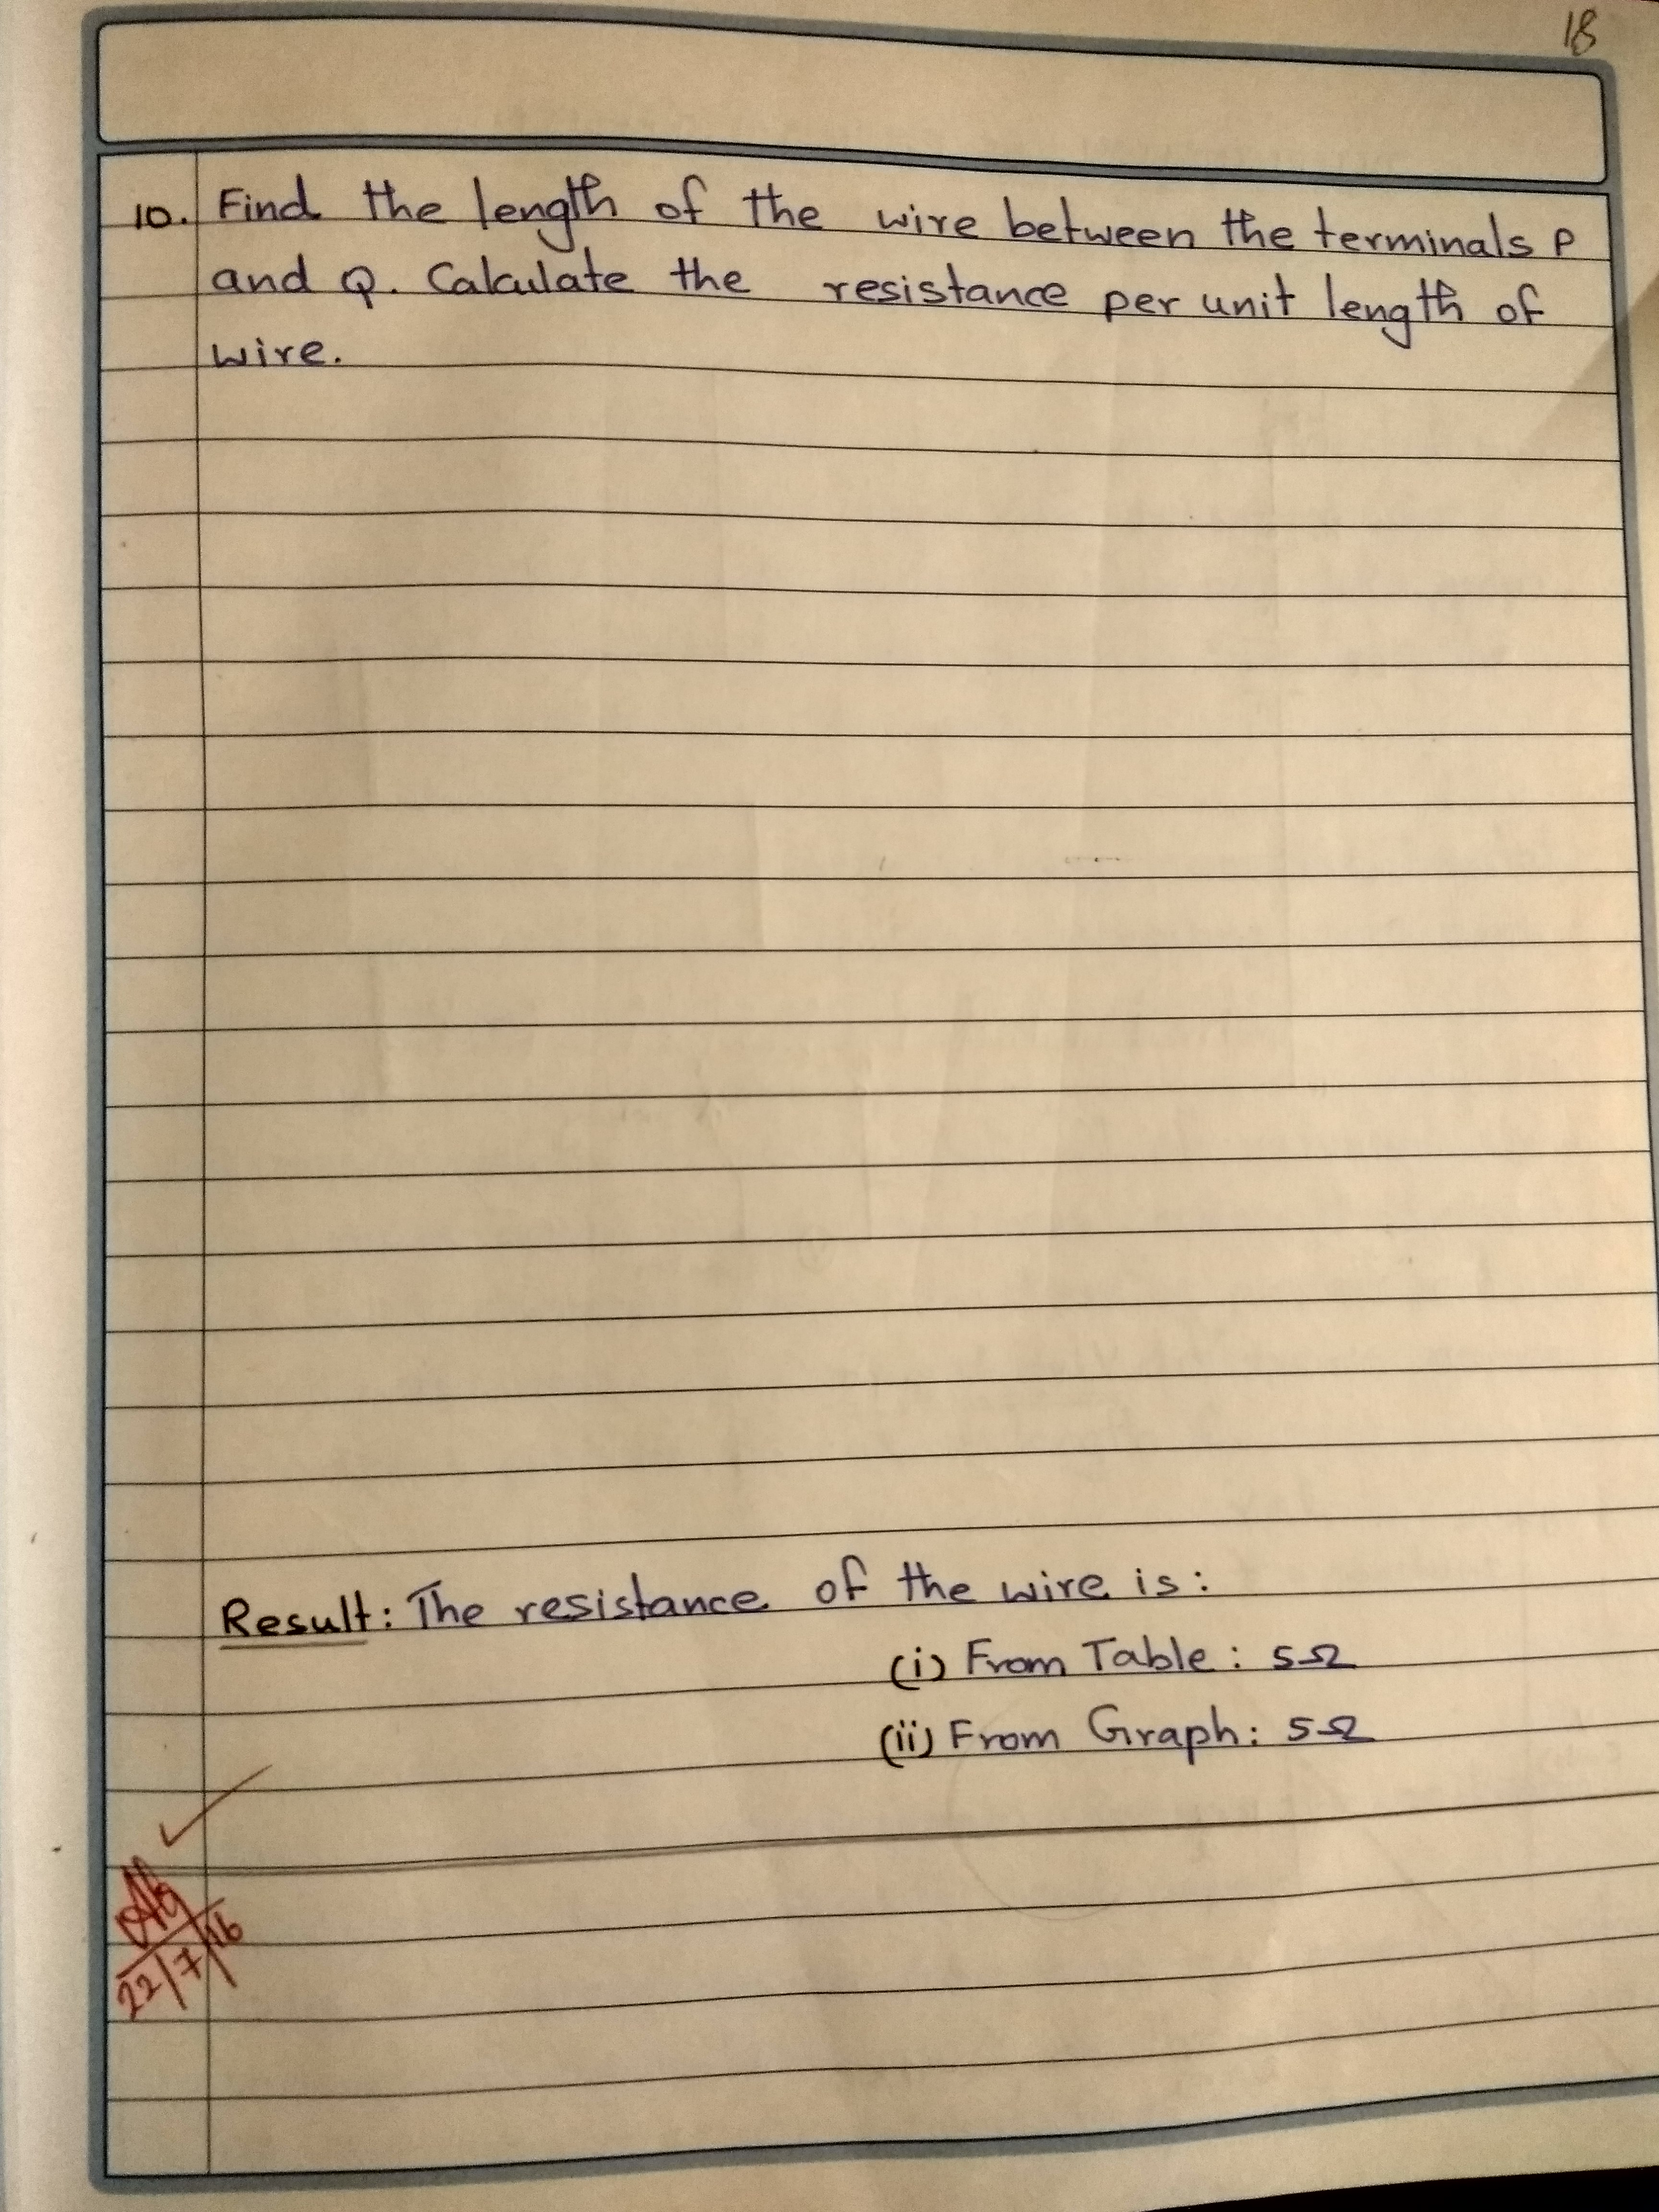 18
10. Find the length of the wire between the terminals P
and Q. Calculate the resistance per unit length of
wire.
Result: The resistance of the wire is:
(i) From Table: 5Ω
(ii) From Graph: 5Ω
22/7/16